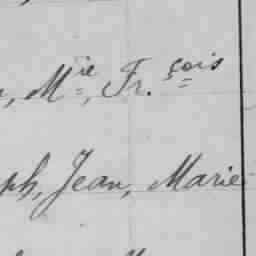 , Mie, Fr.çois
ph, Jean, Marie